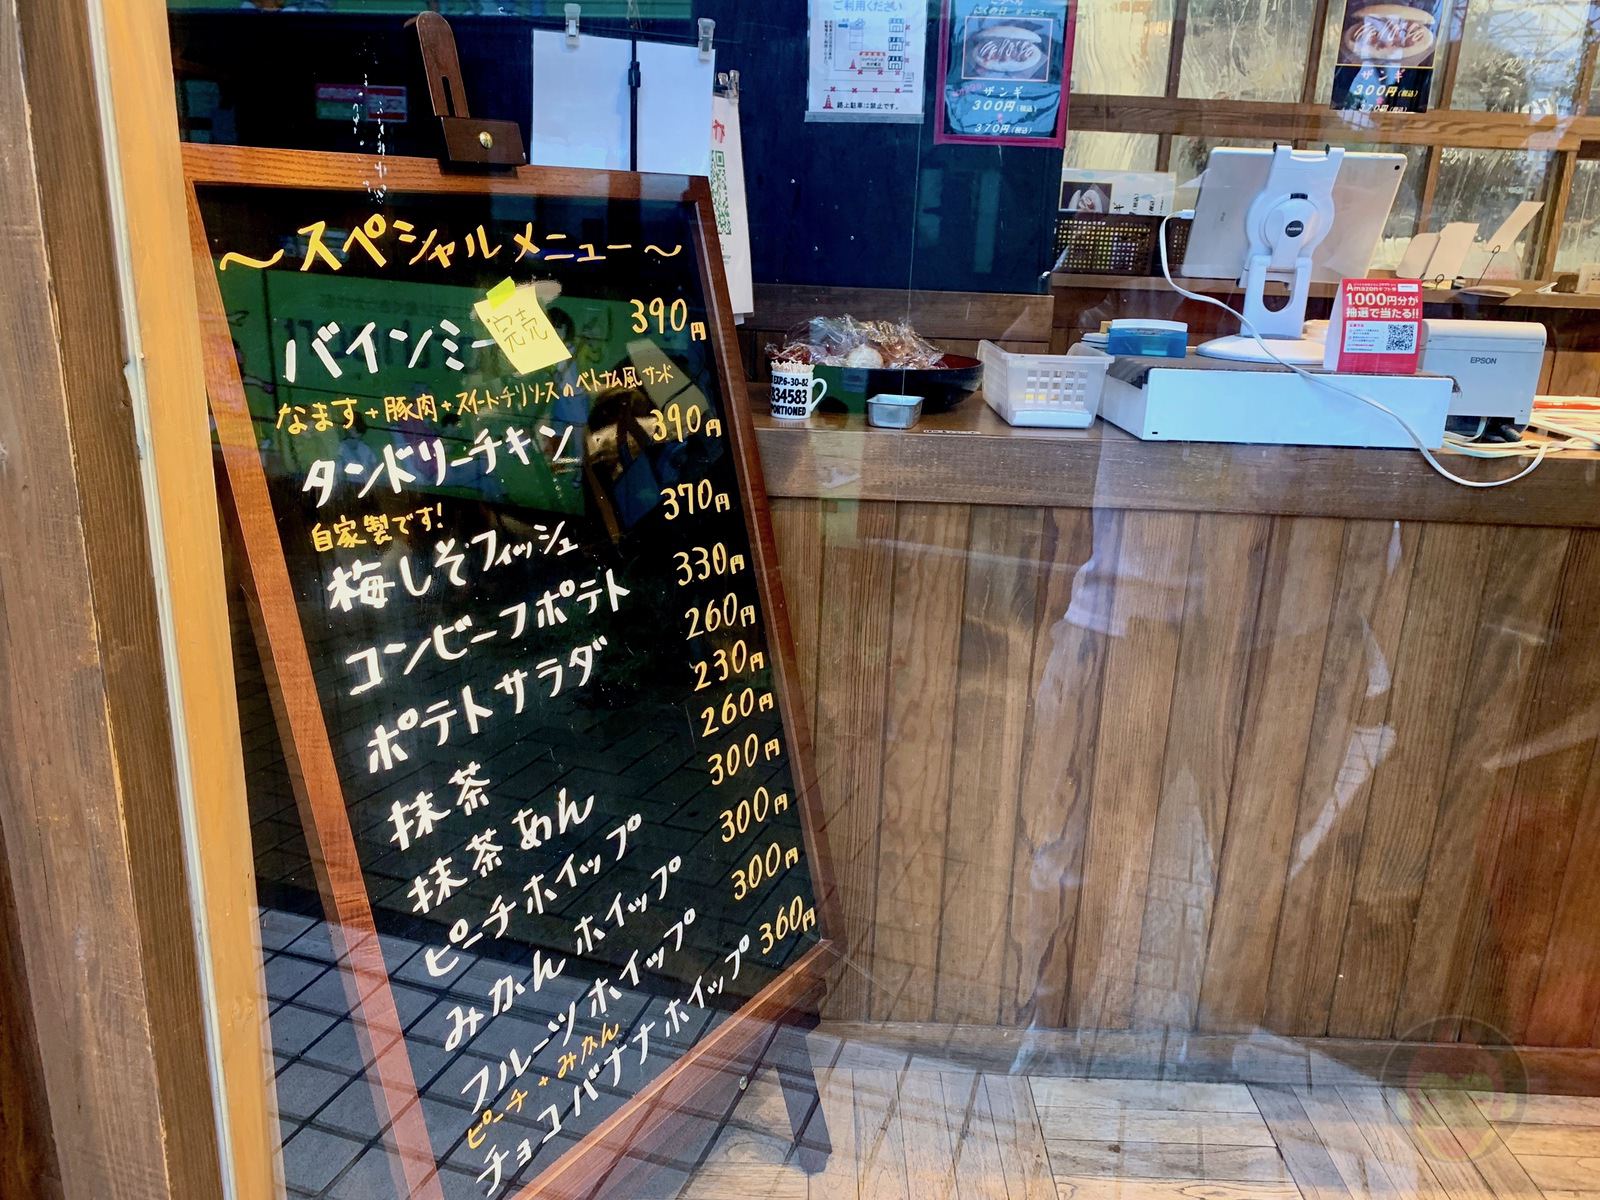 ～スペシャルメニュー～
バインミー 完売 390円
なます+豚肉+スイートチリソースのベトナム風サンド
タンドリーチキン 390円
自家製です!
梅しそフィッシュ 370円
コンビーフポテト 330円
ポテトサラダ 260円
抹茶 230円
抹茶あん 260円
ピーチホイップ 300円
みかんホイップ 300円
フルーツホイップ 300円
ピーチ+みかん
チョコバナナホイップ 360円
ご利用ください
路上駐車は禁止です。
ザンギ
300円(税込)
370円(税込)
ザンギ
300円(税込)
370円(税込)
EXP.6-30-82
834583
PORTIONED
Amazonギフト券
1,000円分が
抽選で当たる!!
EPSON